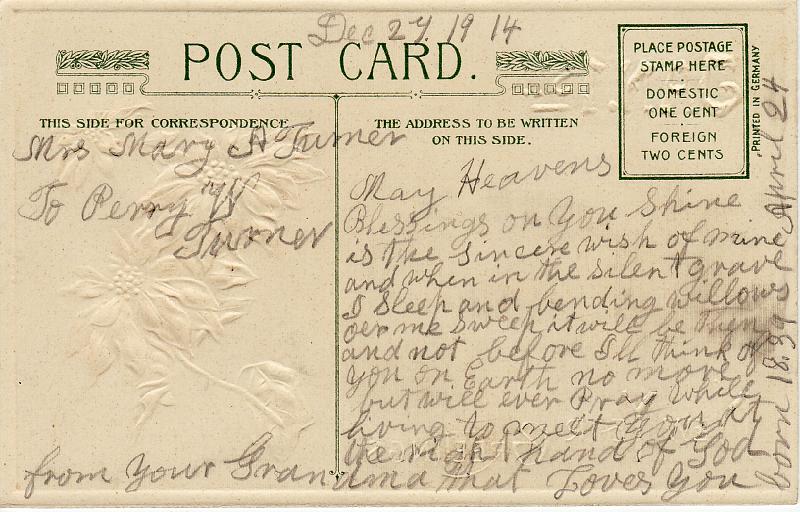 Dec 27 1914
POST CARD.
PLACE POSTAGE
STAMP HERE
DOMESTIC
ONE CENT
FOREIGN
TWO CENTS
PRINTED IN GERMANY
THIS SIDE FOR CORRESPONDENCE
THE ADDRESS TO BE WRITTEN
ON THIS SIDE.
Mrs Mary A Turner
To Perry W
Turner
May Heavens
Blessings on You Shine
is the sincere wish of mine
and when in the silent grave
I Sleep and bending willows
oer me sweep it will be then
and not before I'll think of
you on Earth no more
but will ever Pray while
living to meet you at
the right hand of God
from Your Grandma that Loves You
born 1839 April 24